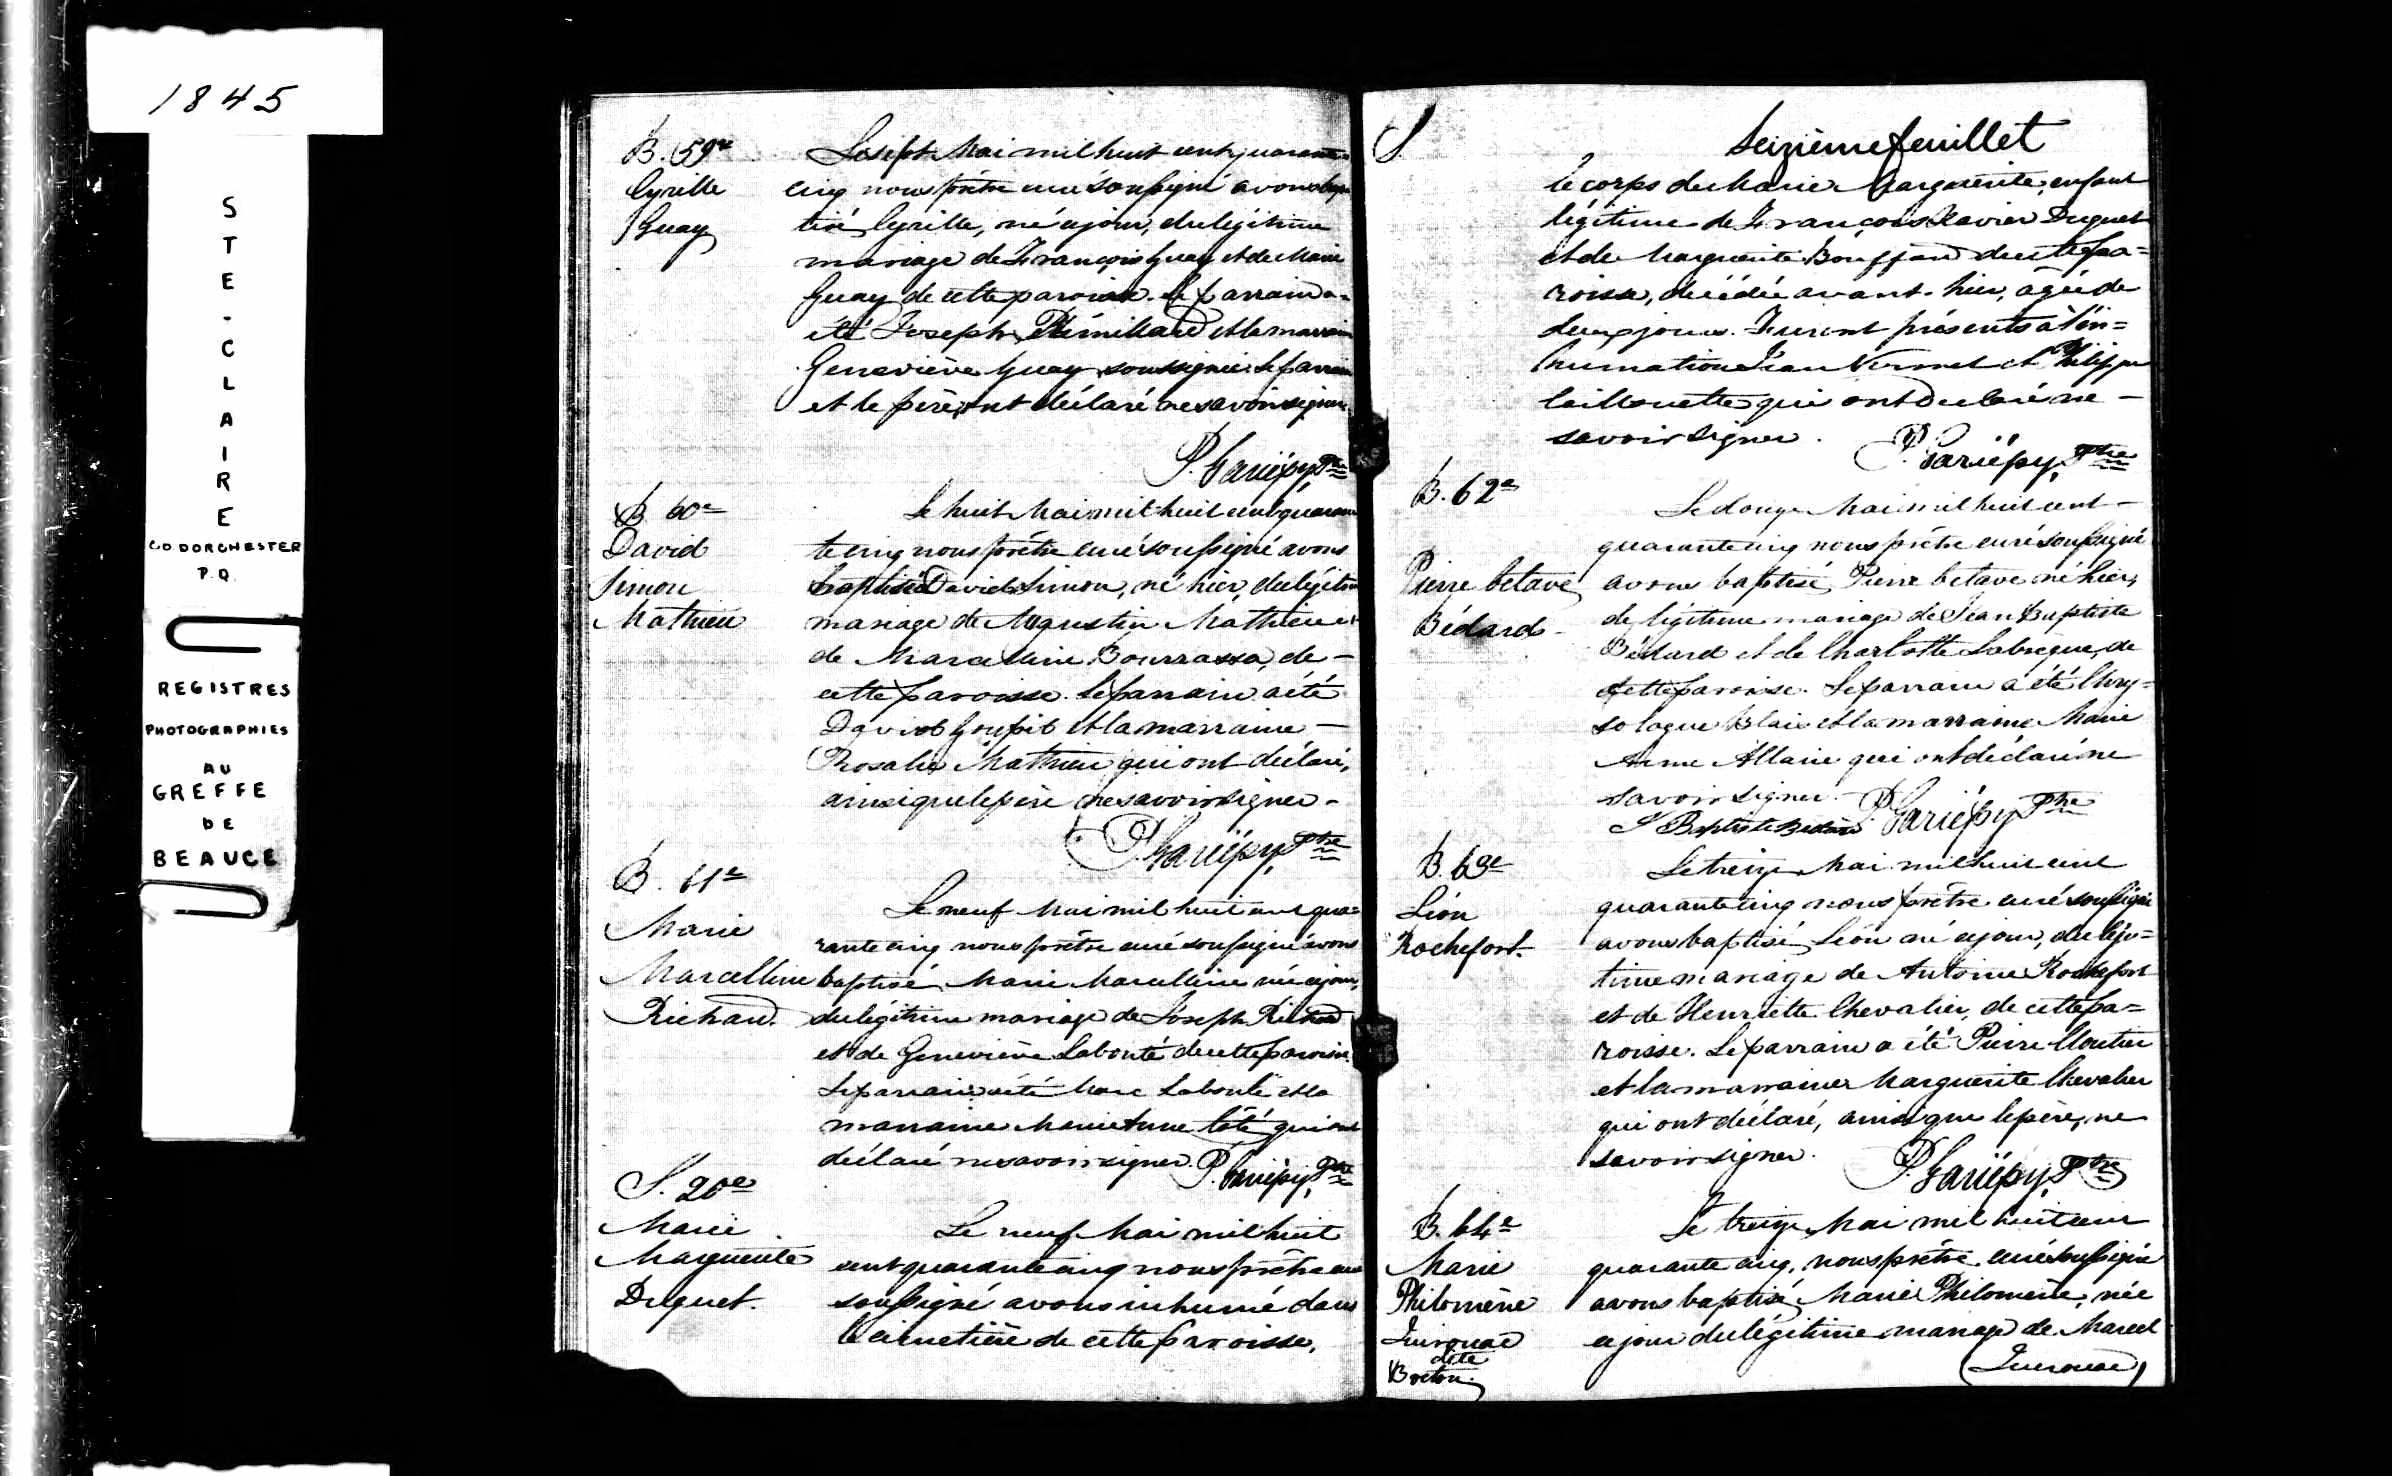 1845
STE-CLAIRE
CO DORCHESTER
P.Q.
REGISTRES
PHOTOGRAPHIES
AU
GREFFE
DE
BEAUCE
B. 59e
Cyrille
Guay
Le sept Mai mil huit cent quarante
cinq nous prêtre curé soussigné avons bap
tisé Cyrille, né ce jour, du légitime
mariage de François Guay et de Marie
Guay de cette paroisse. Le parrain a
été Joseph Rémillard et la marraine
Geneviève Guay soussignée. Le parrain
et le père ont déclaré ne savoir signer.
P. Gariépy, Ptre
B. 60e
David
Simon
Mathieu
Le huit Mai mil huit cent quaran
te cinq nous prêtre curé soussigné avons
baptisé David Simon, né hier, du légitime
mariage de Augustin Mathieu et
de Marcelline Bourrassa, de
cette paroisse. Le parrain a été
David Goupil et la marraine
Rosalie Mathieu qui ont déclaré,
ainsi que le père ne savoir signer.
P. Gariépy, Ptre
B. 61e
Marie
Marcelline
Richard.
Le neuf Mai mil huit cent qua=
rante cinq nous prêtre curé soussigné avons
baptisé Marie Marcelline née ce jour,
du légitime mariage de Joseph Richard
et de Geneviève Labonté de cette paroisse.
Le parrain a été Marc Labonté et la
marraine Marie Anne Côté qui ont
déclaré ne savoir signer. P. Gariépy, Ptre
S. 20e
Marie
Marguerite
Duquet.
Le neuf Mai mil huit
cent quarante cinq nous prêtre curé
soussigné avons inhumé dans
le cimetière de cette paroisse,
S.
Seizième feuillet
le corps de Marie Marguerite, enfant
légitime de François Xavier Duquet
et de Marguerite Bouffard de cette pa=
roisse, décédée avant-hier, âgée de
deux jours. Furent présents à l'in=
humation Jean Vermet et Philippe
Caillouette qui ont déclaré ne
savoir signer. P. Gariépy, Ptre
B. 62e
Pierre Octave
Bédard
Le douze Mai mil huit cent
quarante cinq nous prêtre curé soussigné
avons baptisé Pierre Octave né hier,
de légitime mariage de Jean Baptiste
Bédard et de Charlotte Labrègue, de
cette paroisse. Le parrain a été Chry=
sologue Blais et la marraine Marie
Anne Allaire qui ont déclaré ne
savoir signer.
J Baptiste Bédard P. Gariépy Ptre
B. 63e
Léon
Rochefort.
Le treize Mai mil huit cent
quarante cinq nous prêtre curé soussigné
avons baptisé Léon né ce jour, du légi=
time mariage de Antoine Rochefort
et de Henriette Chevalier, de cette pa=
roisse. Le parrain a été Pierre Cloutier
et la marraine Marguerite Chevalier
qui ont déclaré, ainsi que le père, ne
savoir signer. P. Gariépy, Ptre
B. 64e
Marie
Philomène
Quirouac
dite
Breton.
Le treize Mai mil huit cent
quarante cinq, nous prêtre curé soussigné
avons baptisé Marie Philomène, née
ce jour du légitime mariage de Marcel
Quirouac